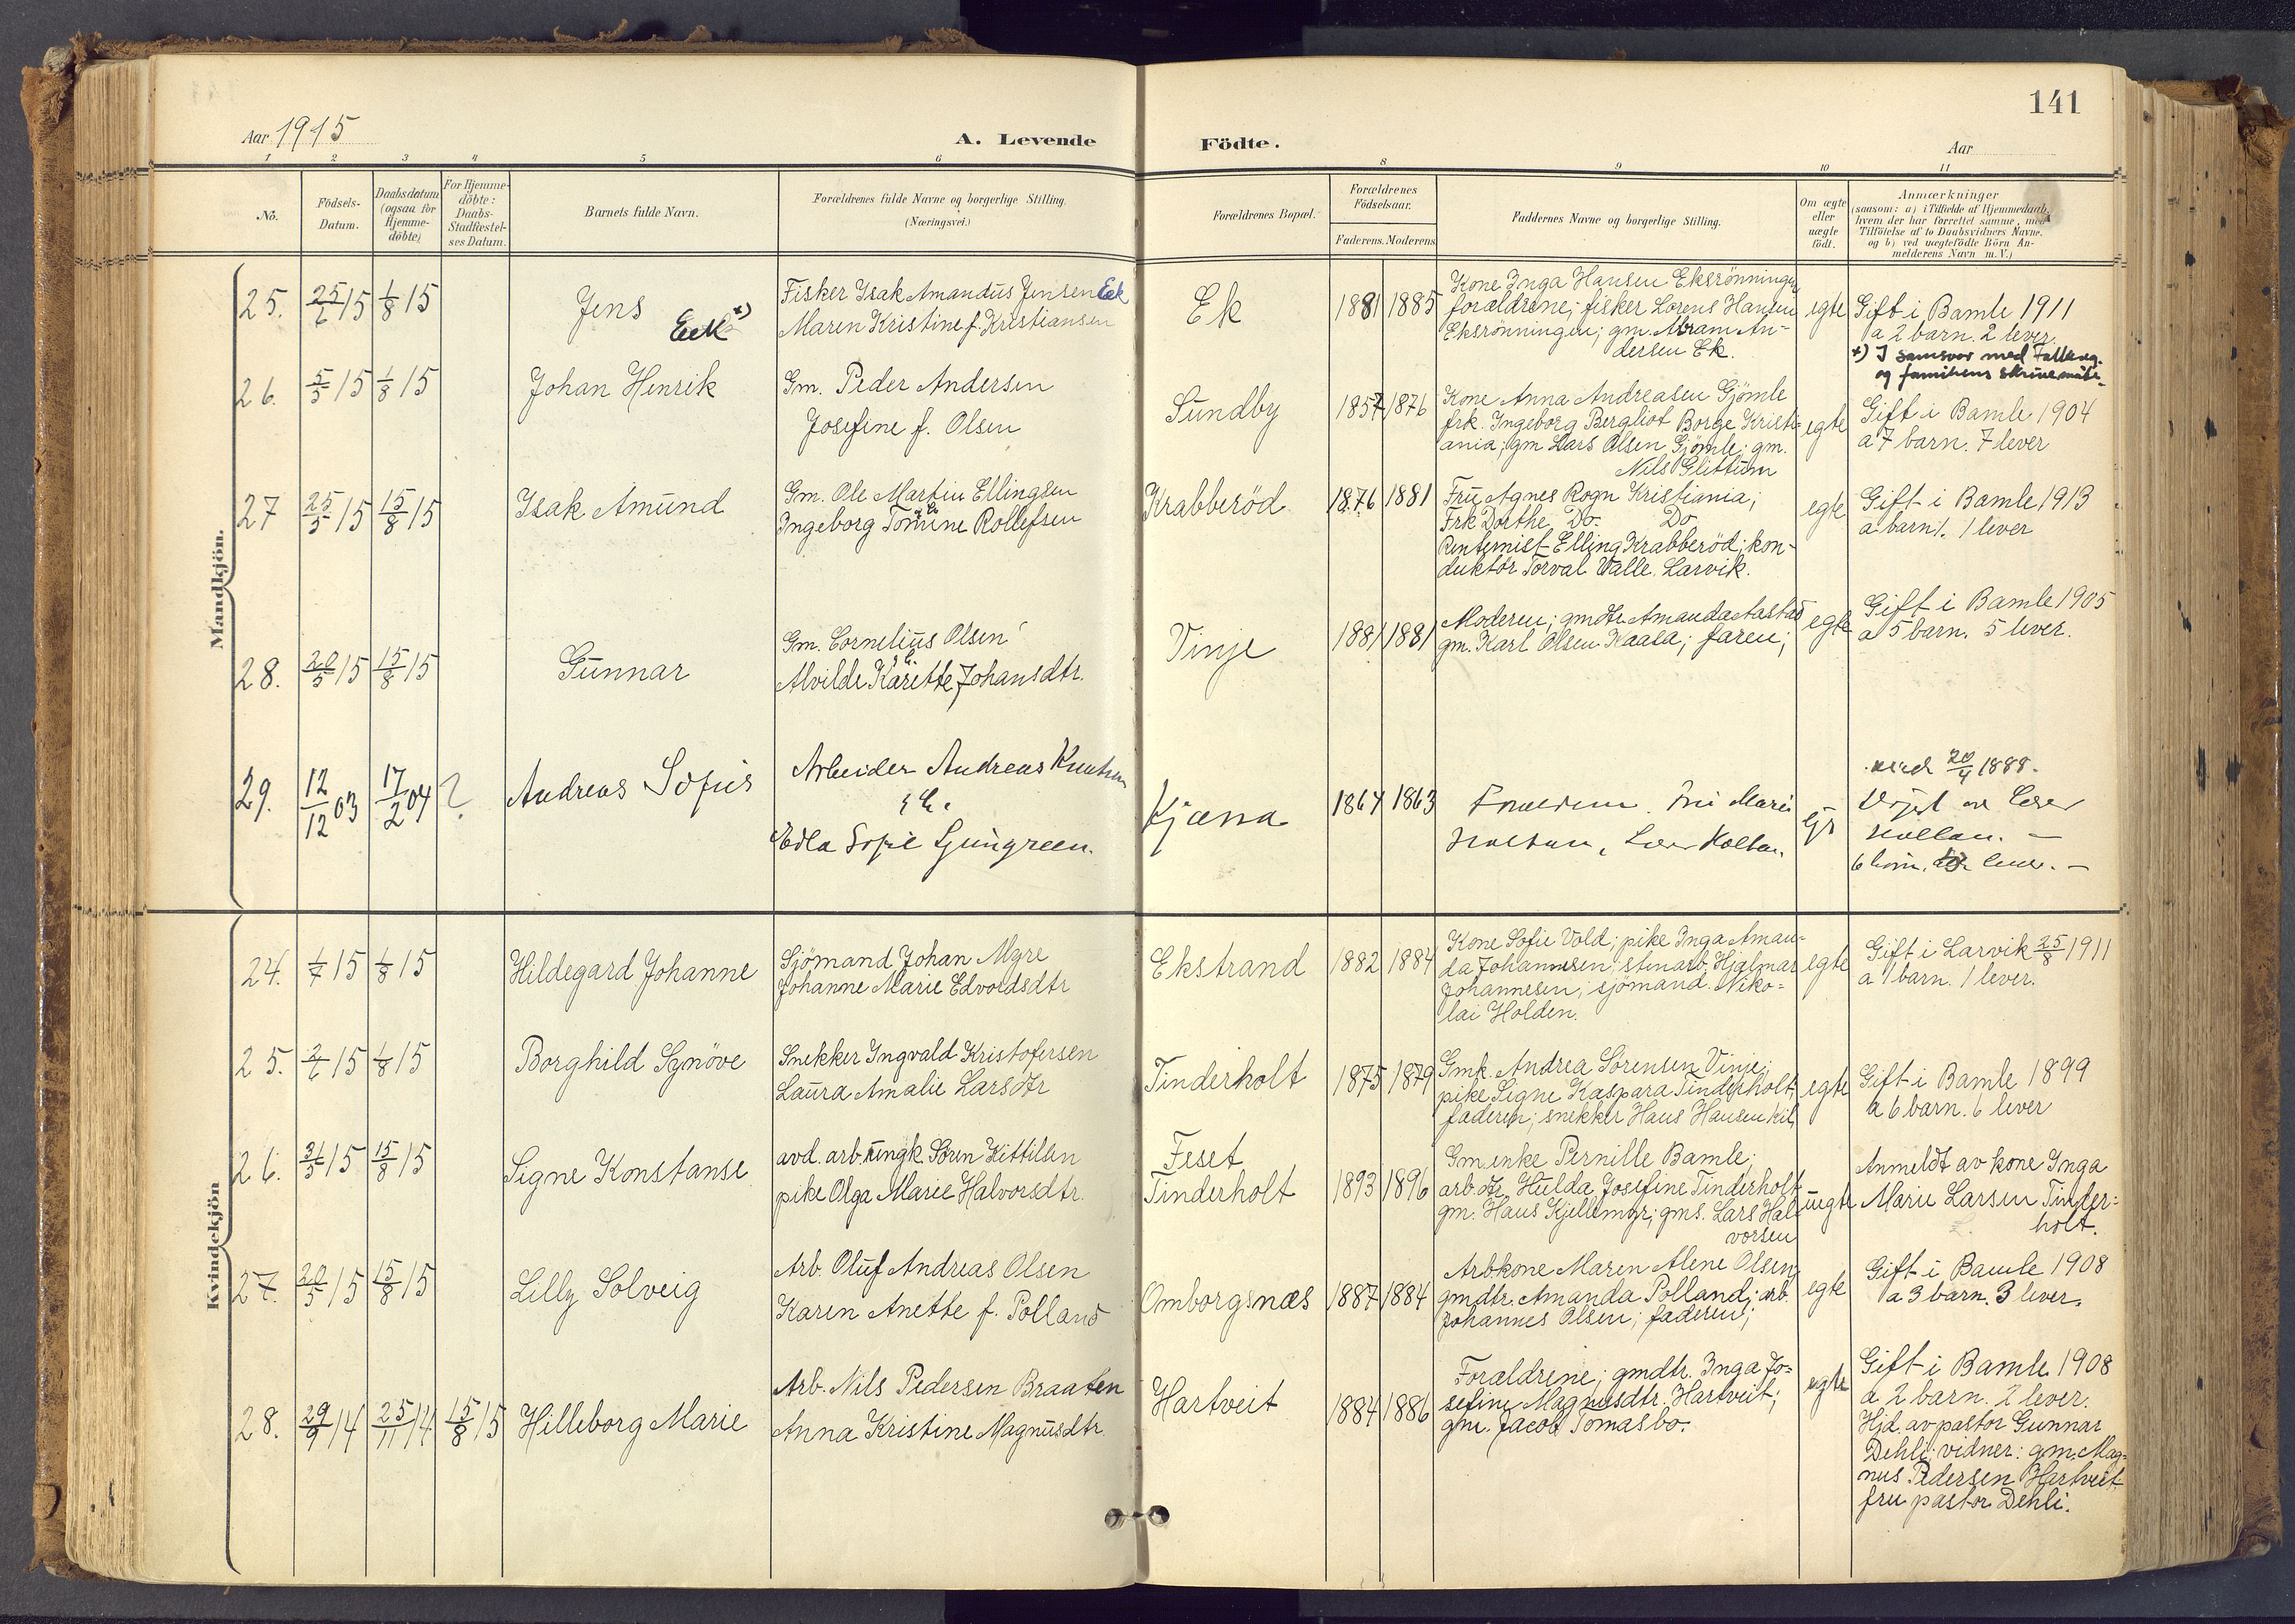 141
Aar 1915
A. Levende Födte.
Aar
1 2 3 4 5 6 8 9 10 11
No.
Födsels-
Datum.
Daabsdatum
(ogsaa for
Hjemme-
döbte)
For Hjemme-
döbte:
Daabs-
Stadfæstel-
ses Datum.
Barnets fulde Navn.
Forældrenes fulde Navne og borgerlige Stilling.
(Næringsvei.)
Forældrenes Bopæl.
Forældrenes
Födselsaar.
Faderens. Moderens
Faddernes Navne og borgerlige Stilling.
Om ægte
eller
uægte
födt.
Anmærkninger
(saasom: a) i Tilfælde af Hjemmedaab,
hvem der har forrettet samme, med
Tilföielse af to Daabsvidners Navne.
og b) ved uægtefödte Börn An-
melderens Navn m.V.)
Mandkjön.
25. 25/6 15 1/8 15
Jens
Eek x)
Fisker Isak Amandus Jensen Eek
Maren Kristine f. Kristiansen
Ek
1881 1885
Kone Inga Hansen Eksrönningen
forældrene; fisker Lorens Hansen
Eksrönningen; gm. Abram An-
dersen Ek.
egte
Gift i Bamle 1911
a 2 barn. 2 lever.
x) I samsvar med
og familiens skrivemåte.
26. 5/5 15 1/8 15
Johan Henrik
Gm. Peder Andersen
Josefine f. Olsen
Sundby
1857 1876
Kone Anna Andreasen Gjömle
frk. Ingeborg Bergliot Borge Kristi-
ania; gm Lars Olsen Gjömle; gm.
Nils Glittum
egte
Gift i Bamle 1904
a 7 barn. 7 lever
27 25/5 15 15/8 15
Isak Amund
Gm. Ole Martin Ellingsen
Ingeborg Tomine Rollefsen
Krabberöd
1876 1881
Fru Agnes Rogn Kristiania;
Frk Dorthe Do. Do
Rentemist Elling Krabberöd; kon-
duktör Torval Valle. Larvik.
egte
Gift i Bamle 1913
a barn 1. 1 lever
28. 20/5 15 15/8 15
Gunnar
Gm. Cornelius Olsen
Alvilde Karette Johansdtr.
Vinje
1881 1881
Moderen; gmdtr. Amanda Aastad
gm. Karl Olsen Kaasa; faren;
egte
Gift i Bamle 1905
a 5 barn. 5 lever.
29. 12/12 03 17/2 04 ?
Andreas Sofus
Arbeider Andreas Knutsen
Edla Sofie Ljungreen.
Kjæna
1864 1863
Marie
20/4 1888.
6
Kvindekjön
24. 1/7 15 1/8 15
Hildegard Johanne
Sjömand Johan Myre
Johanne Marie Edvardsdtr
Ekstrand
1882 1884
Kone Sofie Vold; pike Inga Aman-
da Johannesen; stenarb. Hjalmar
Johannesen; sjömand. Niko-
lai Holden.
egte
Gift i Larvik 25/8 1911
a 1 barn. 1 lever.
25. 2/6 15 1/8 15
Borghild Synöve
Snekker Ingvald Kristofersen
Laura Amalie Larsdtr
Tinderholt
1875 1879
Gmk. Andrea Sörensen Vinje;
pike Signe Kaspara Tinderholt;
faderen; snekker Hans Hansen Kil
egte
Gift i Bamle 1899
a 6 barn. 6 lever
26. 31/5 15 15/8 15
Signe Konstanse
avd. arb. ungk. Sören Kittilsen
pike Olga Marie Halvorsdtr.
Feset
Tinderholt
1893 1896
Gmenke Pernille Bamle;
arb. dtr. Hulda Josefine Tinderholt
gm. Hans Kjellemyr; gms. Lars Hal-
vorsen
uegte
Anmeldt av kone Inga
Marie Larsen Tinder-
holt.
27. 20/5 15 15/8 15
Lilly Solveig
Arb. Oluf Andreas Olsen
Karen Anette f. Polland
Omborgsnæs
1887 1884
Arbkone Maren Alene Olsen;
gmdtr. Amanda Polland; arb.
Johannes Olsen; faderen;
egte
Gift i Bamle 1908
a 3 barn. 3 lever.
28. 29/9 14 25/11 14 15/8 15
Hilleborg Marie
Arb. Nils Pedersen Braaten
Anna Kristine Magnusdtr.
Hartveit
1884 1886
Foraldrene; gmdtr. Inga Jo-
sefine Magnusdtr. Hartveit;
gm. Jacob Tomasbo.
egte
Gift i Bamle 1908
a 2 barn. 2 lever.
Hjd. av pastor Gunnar
Dehli; vidner: gm. Mag-
nus Pedersen Hartveit
fru pastor Dehli.